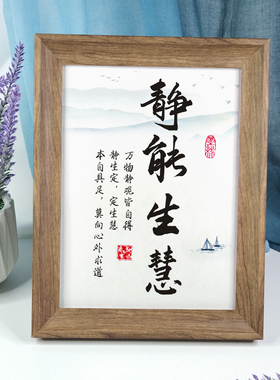 静能生慧
万物静观皆自得
静生定，定生慧
本自具足，莫向心外求道